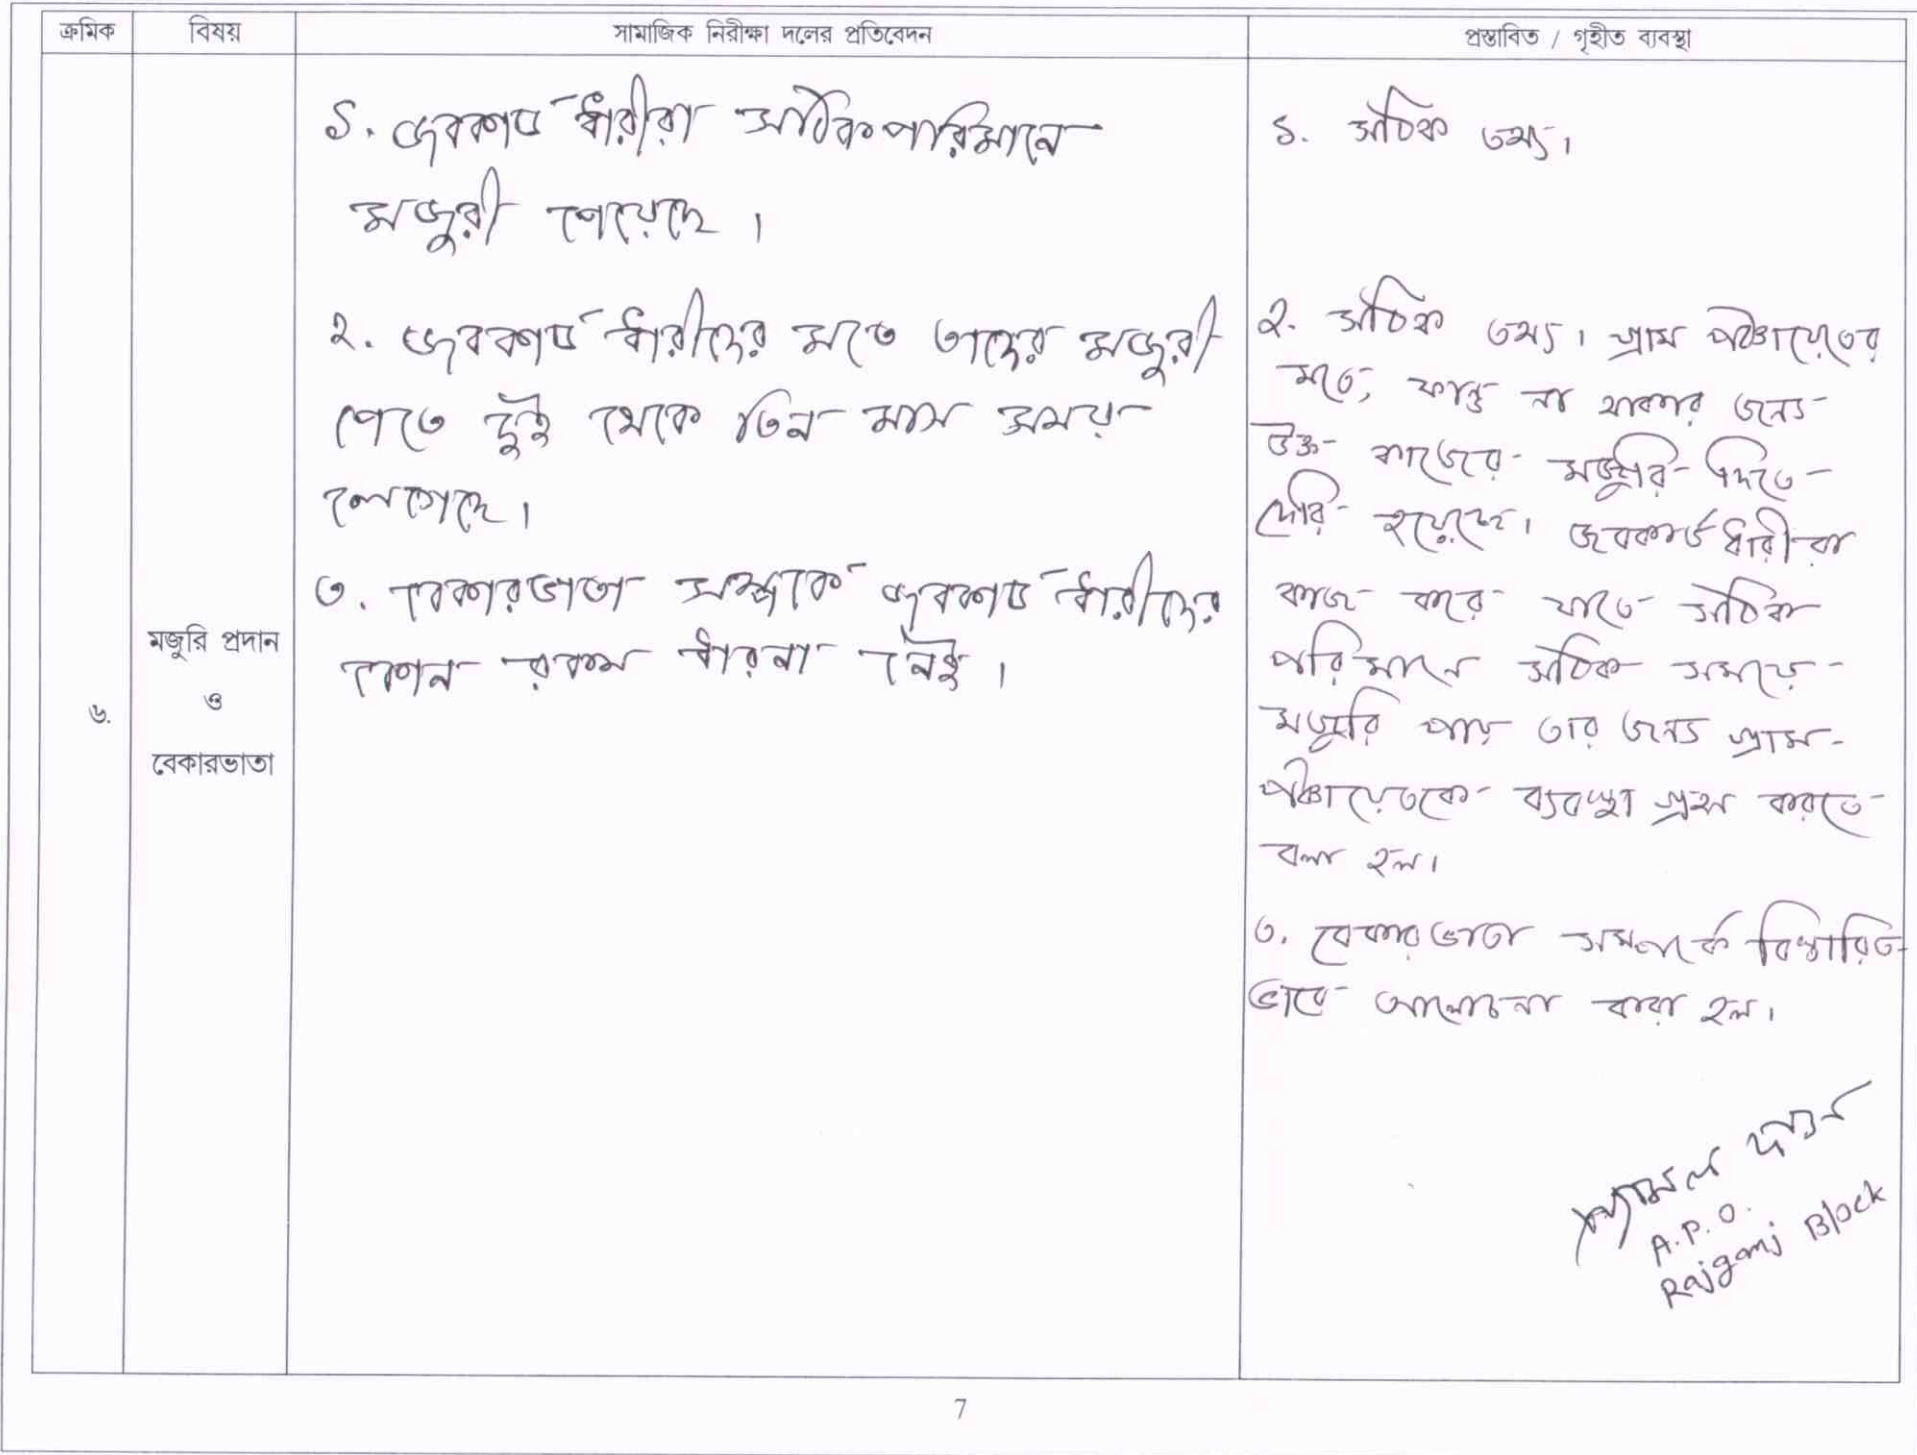 ক্রমিক
বিষয়
সামাজিক নিরীক্ষা দলের প্রতিবেদন
প্রস্তাবিত / গৃহীত ব্যবস্থা
৬.
মজুরি প্রদান
ও
বেকারভাতা
১. জবকার্ড ধারীরা সঠিক পরিমানে
মজুরী পেয়েছে ।
২. জবকার্ড ধারীদের মতে তাদের মজুরী
পেতে দুই থেকে তিন মাস সময়
লেগেছে।
৩. বেকারভাতা সম্পর্কে জবকার্ড ধারীদের
কোন রকম ধারনা নেই ।
১. সঠিক তথ্য।
২. সঠিক তথ্য। গ্রাম পঞ্চায়েতের
মতে, ফান্ড না থাকার জন্য
উক্ত কাজের মজুরি দিতে
দেরি হয়েছে। জবকার্ড ধারীরা
কাজ করে যাতে সঠিক
পরিমানে সঠিক সময়ে
মজুরি পায় তার জন্য গ্রাম
পঞ্চায়েতকে ব্যবস্থা গ্রহন করতে
বলা হল।
৩. বেকারভাতা সম্পর্কে বিস্তারিত
ভাবে আলোচনা করা হল।
শ্যামল
A.P.O.
Rajganj Block
7